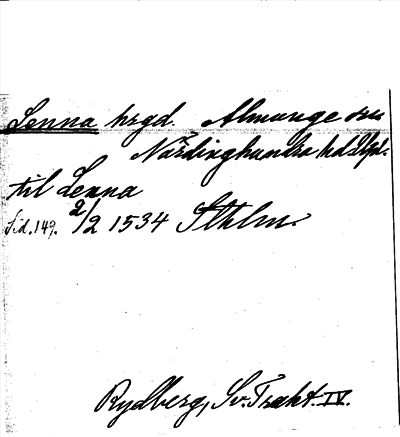 Lenna hrgd. Almunge sn
Närdinghundra hd Upl.
til Lenna
Sid. 149. 2/2 1534 Sthlm.
Rydberg, Sv. Trakt. IV.